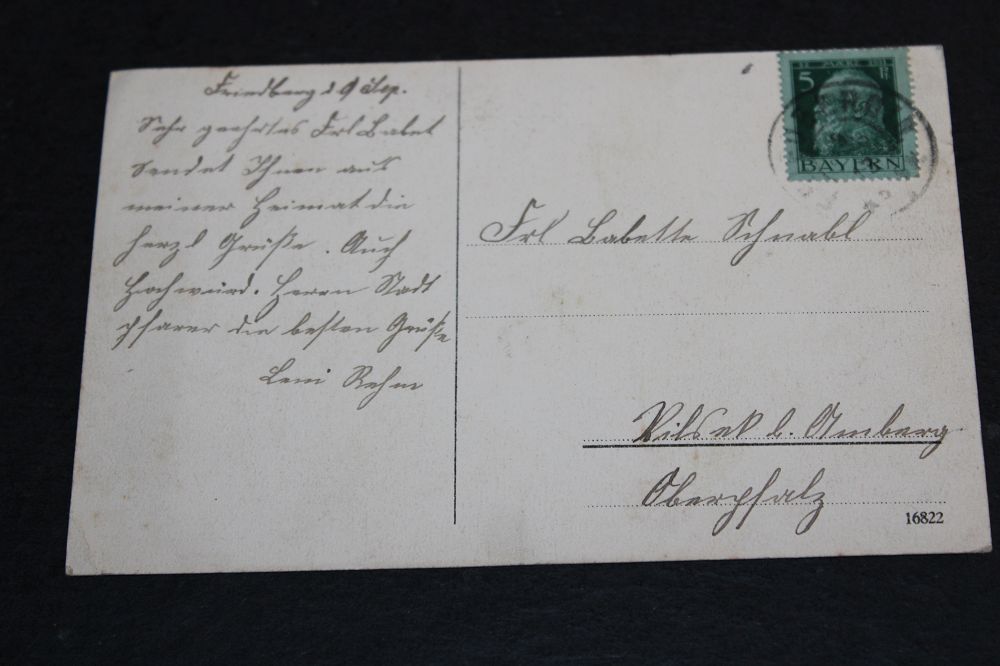 Friedberg d 9 Sep.
Sehr geehrtes Frl Babet
Sendet Ihnen aus
meiner Heimat die
herzl Grüße. Auch
Hochwürd. Herrn Stadt
pfarer die besten Grüße
Leni Rehm
5 Pf
BAYERN
Frl Babette Schnabl
Vilsek b. Amberg
Oberpfalz
16822